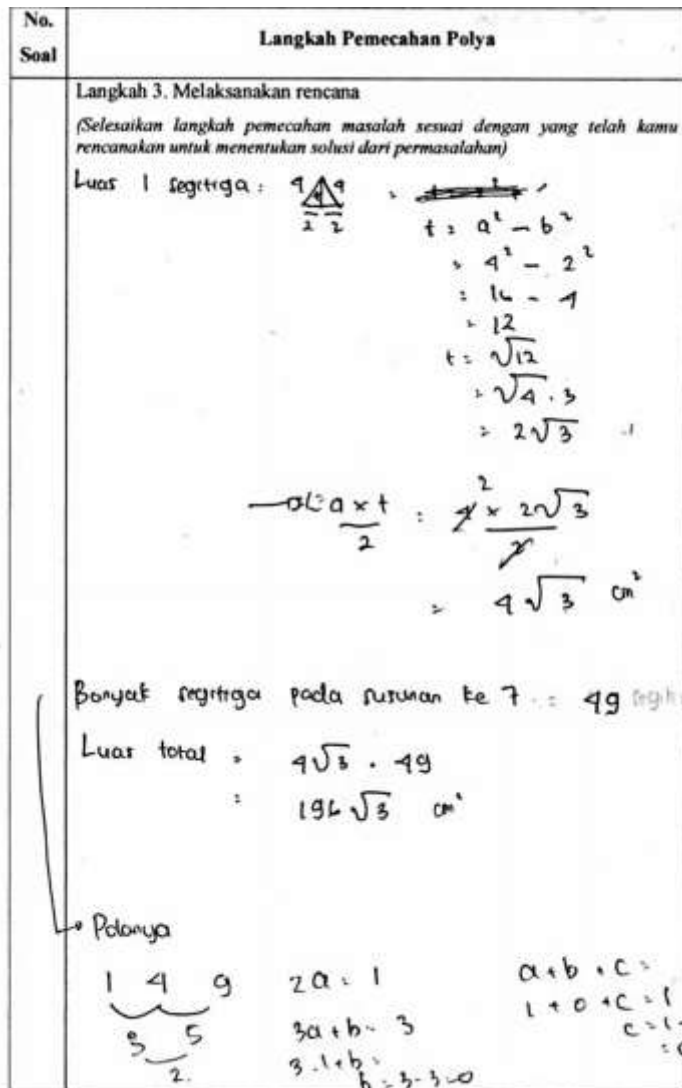 No. Soal
Langkah Pemecahan Polya
Langkah 3. Melaksanakan rencana
(Selesaikan langkah pemecahan masalah sesuai dengan yang telah kamu
rencanakan untuk menentukan solusi dari permasalahan)
Luas 1 segitiga : 4 4
2 2
t = a² - b²
= 4² - 2²
= 16 - 4
= 12
t = √12
= √4 . 3
= 2√3
L = a x t / 2 = 4 x 2√3 / 2
= 4√3 cm²
Banyak segitiga pada susunan ke 7 = 49
Luas total = 4√3 . 49
= 196√3 cm²
Polanya
1 4 9
3 5
2
2a = 1
3a + b = 3
3.1 + b =
b = 3-3=0
a + b + c =
1 + 0 + c = 1
c = 1-